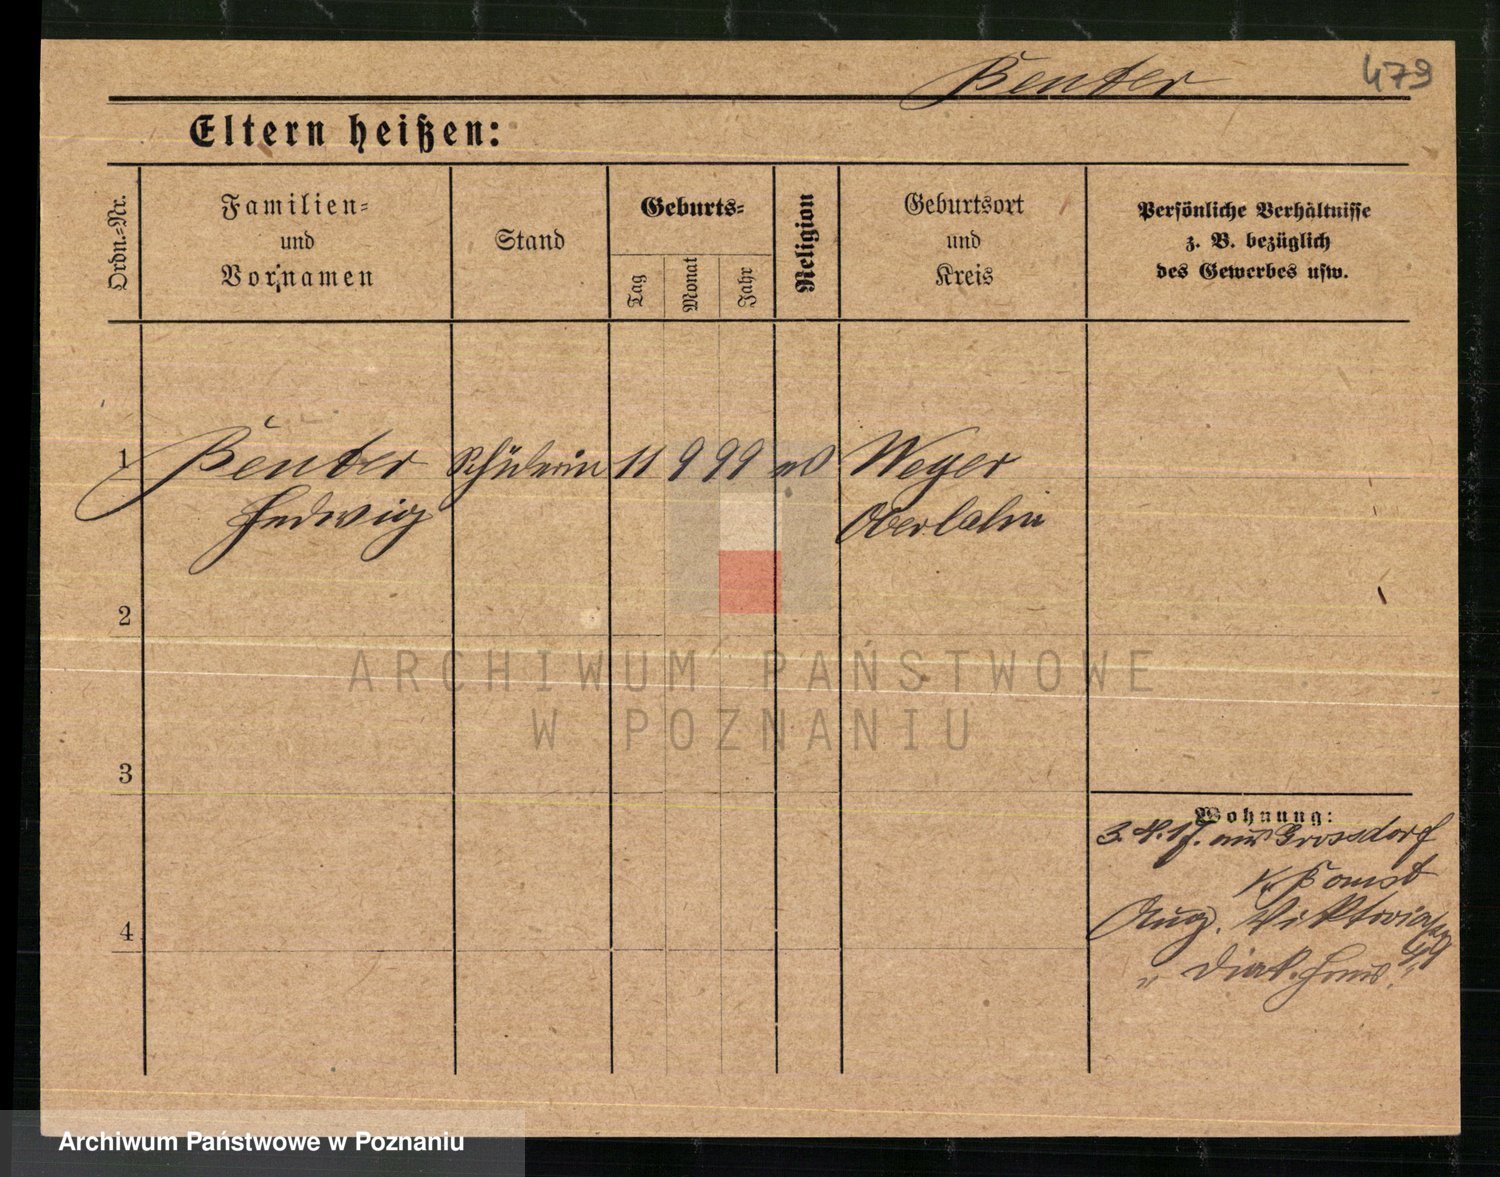 Benter
479
Eltern heißen:
Ordn.-Nr.
Familien-
und
Vornamen
Stand
Geburts-
Tag
Monat
Jahr
Religion
Geburtsort
und
Kreis
Persönliche Verhältnisse
z. B. bezüglich
des Gewerbes usw.
1 Benter Schülerin 11 9 99 Weyer
Hedwig Oberlahn
2
3
4
Wohnung:
3. 4. 17. aus Grossdorf
K. Bomst
Aug. Viktoriastr
" Diak. Haus. "
ARCHIWUM PAŃSTWOWE
W POZNANIU
Archiwum Państwowe w Poznaniu